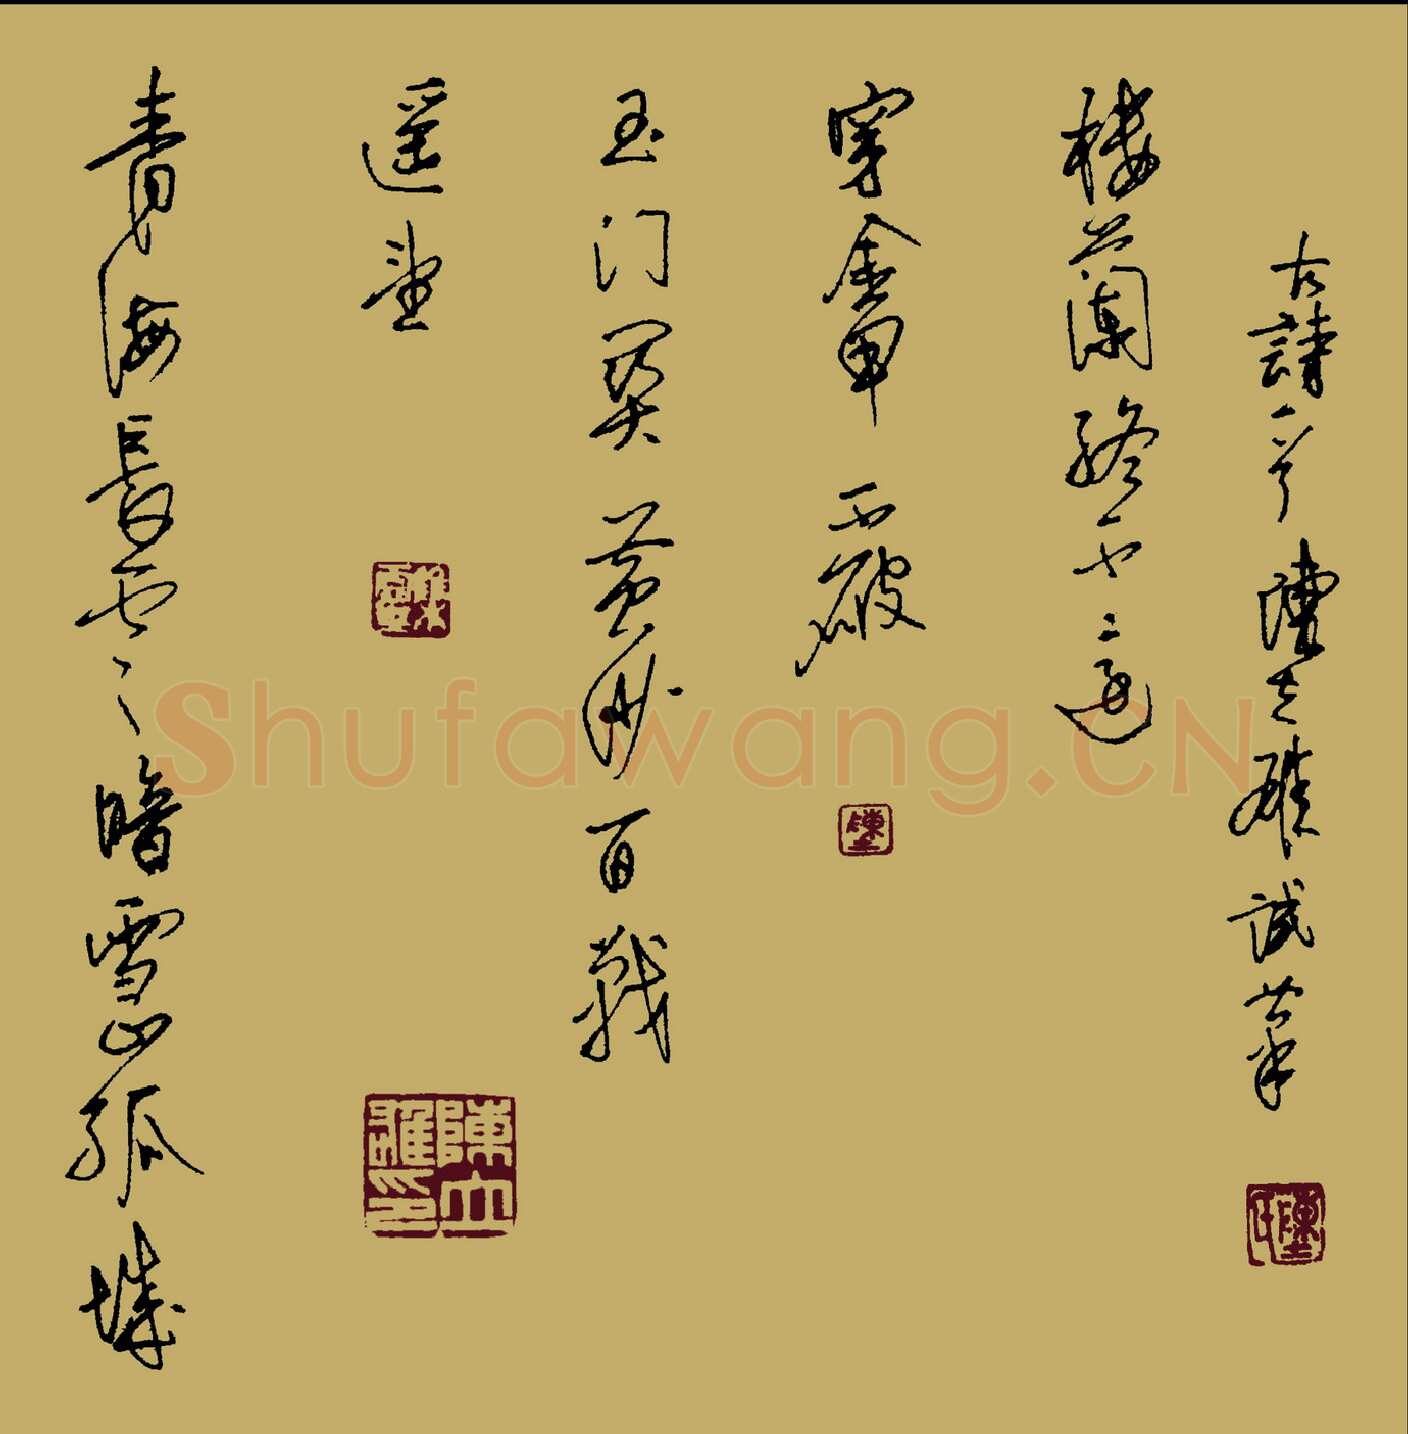 青海長雲暗雪山孤城
遥望
玉门関黄沙百戰
穿金甲不破
樓蘭終不還
古詩一首陳雄試筆
Shufawang.CN